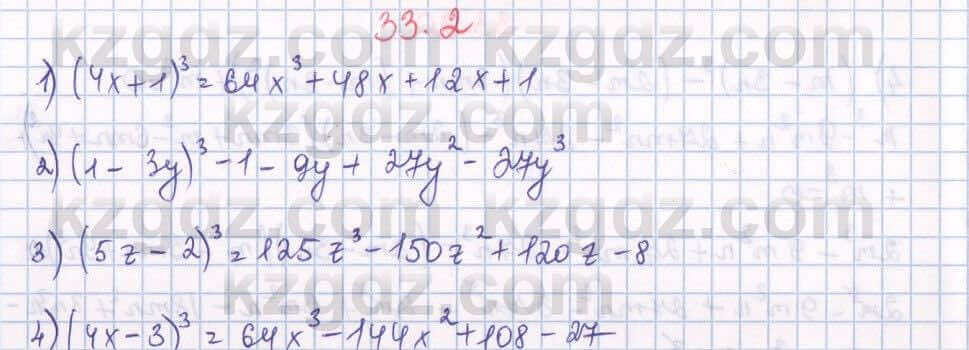 33.2
1) (4x+1)³ = 64x³ + 48x + 12x + 1
2) (1 - 3y)³ - 1 - 9y + 27y² - 27y³
3) (5z - 2)³ = 125z³ - 150z² + 120z - 8
4) (4x - 3)³ = 64x³ - 144x² + 108 - 27
kzgdz.com
kzgdz.com
kzgdz.com
kzgdz.com